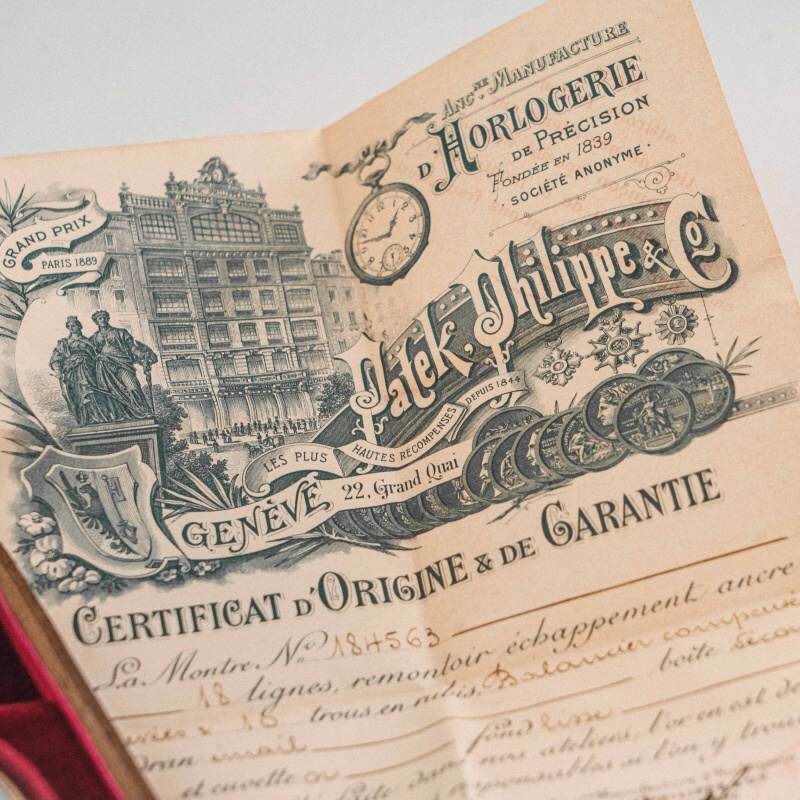 ANC.NE MANUFACTURE
D'HORLOGERIE
DE PRÉCISION
FONDÉE EN 1839
SOCIÉTÉ ANONYME.
GRAND PRIX
PARIS 1889
Patek, Philippe & Co
LES PLUS HAUTES RECOMPENSES DEPUIS 1844
GENÈVE 22, Grand Quai
CERTIFICAT D'ORIGINE & DE GARANTIE
La Montre No 184563
18 lignes, remontoir échappement ancre
15 trous en rubis. Balancier
boîte
émail fond lisse
et cuvette or nos ateliers, l'or en est de
responsables si l'on y